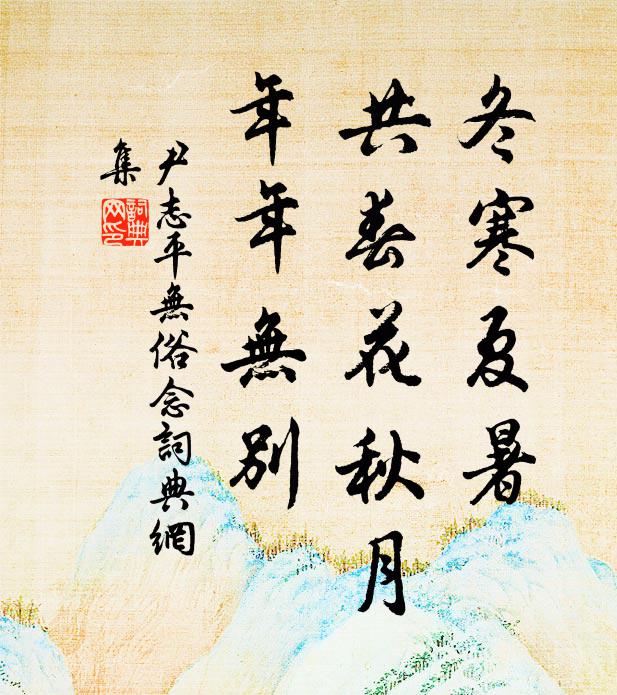 冬寒夏暑
共春花秋月
年年無別
尹志平無俗念詞典網
集
詞典网印